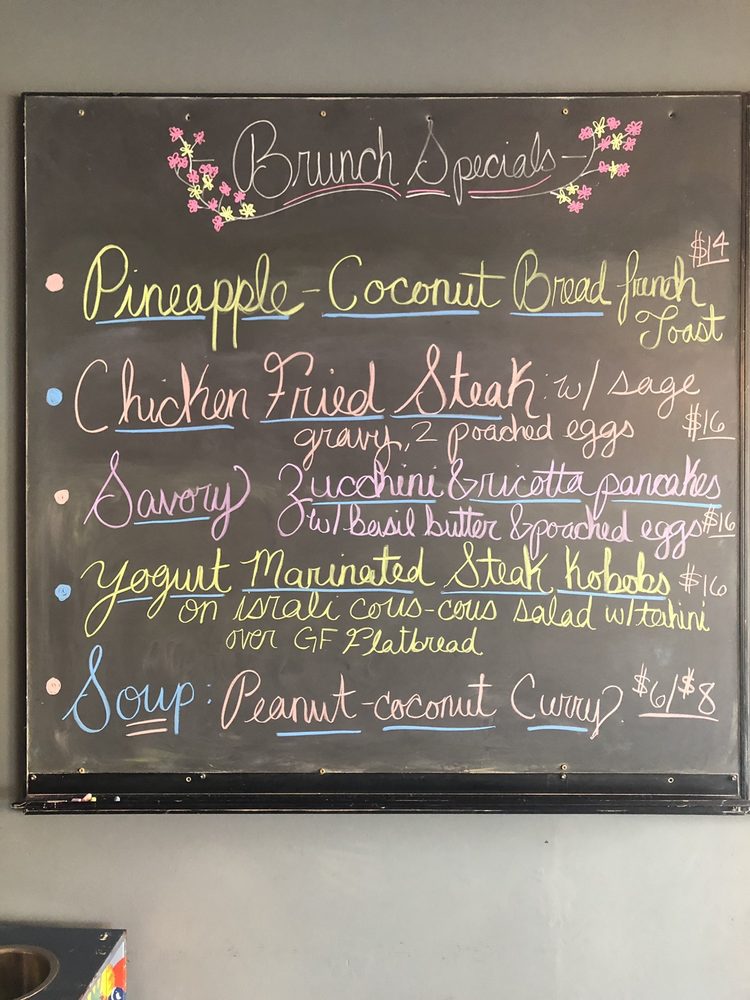 Brunch Specials
$14
Pineapple-Coconut Bread french
Toast
Chicken Fried Steak: w/ sage
gravy, 2 poached eggs $16
Savory Zucchini & ricotta pancakes
w/ basil butter & poached eggs $16
Yogurt Marinated Steak Kobobs $16
on israli cous-cous salad w/ tahini
over GF Flatbread
Soup: Peanut-coconut Curry $6/$8